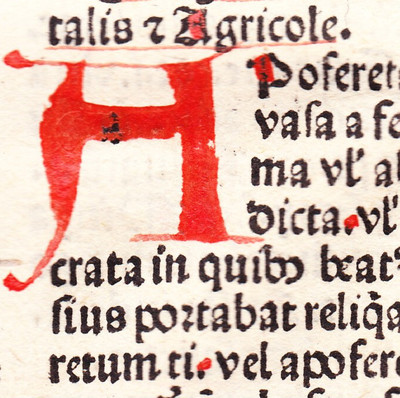 talis ⁊ Agricole.
A Poferet
vaſa a fe
ma vl' al
dicta. vl'
crata in quibꝰ beat
ſius poꝛtabat reliq̄a
retum ti. vel apofer